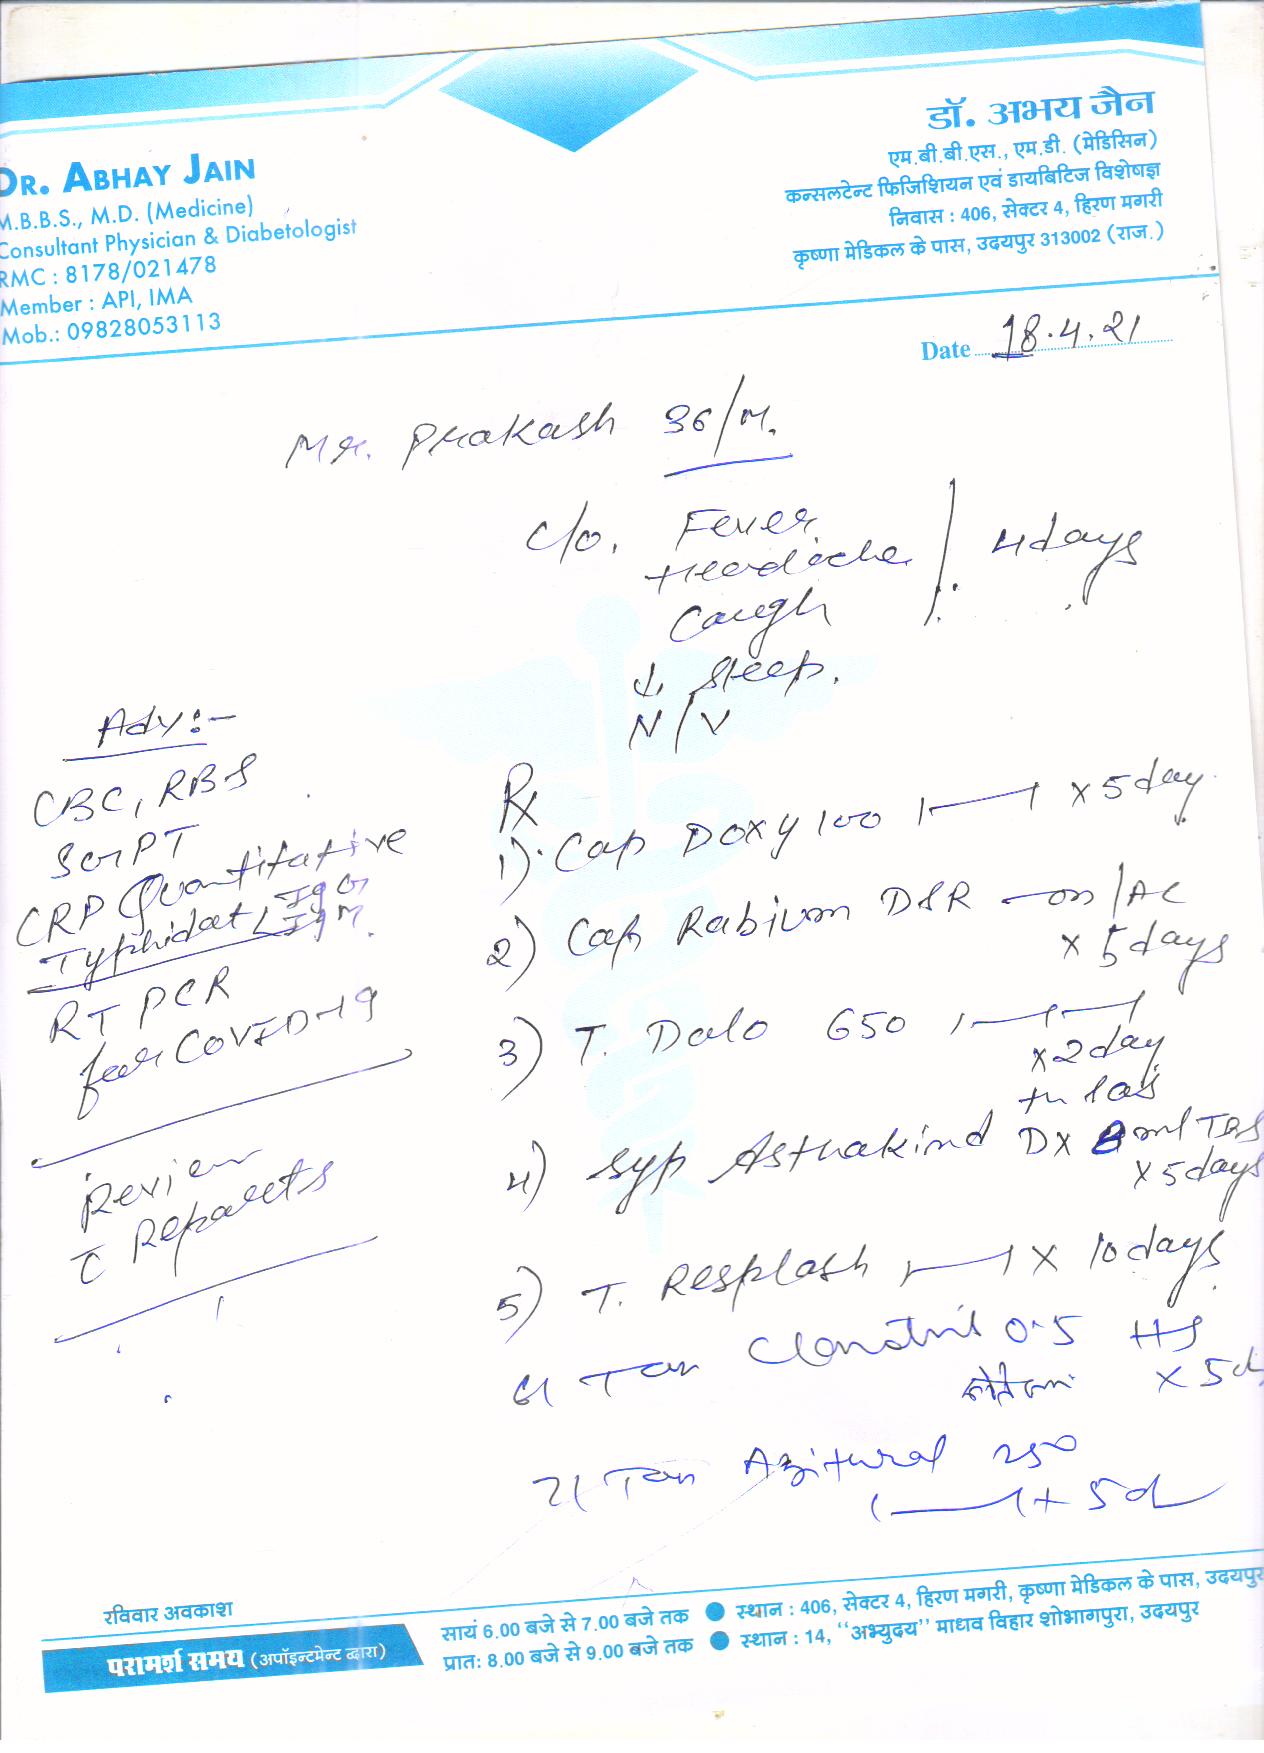 DR. ABHAY JAIN
M.B.B.S., M.D. (Medicine)
Consultant Physician & Diabetologist
RMC : 8178/021478
Member : API, IMA
Mob.: 09828053113
डॉ. अभय जैन
एम.बी.बी.एस., एम.डी. (मेडिसिन)
कन्सलटेन्ट फिजिशियन एवं डायबिटिज विशेषज्ञ
निवास : 406, सेक्टर 4, हिरण मगरी
कृष्णा मेडिकल के पास, उदयपुर 313002 (राज.)
Date 18.4.21
Mr. Prakash 36/M.
C/o. Fever
Headache
Cough
4 days
↓ Sleep.
N/V
Adv:-
CBC, RBS
SGPT
CRP Quantitative
Typhidot < IgG
IgM.
RT PCR
for COVID-19
Review
c Reports
Rx
1) Cap Doxy 100 1—1 x 5 day
2) Cap Rabium DSR — on/AC
x 5 days
3) T. Dolo 650 1—1—1
x 2 day
4) Syp Asthakind DX 8 ml TDS
x 5 days
5) T. Resplash 1—1 x 10 days
6) Tab Clonotril 0.5 HS
x 5d
7) Tab Azithral 250
1—1 + 5d
रविवार अवकाश
परामर्श समय (अपॉइन्टमेन्ट द्वारा)
सायं 6.00 बजे से 7.00 बजे तक ● स्थान : 406, सेक्टर 4, हिरण मगरी, कृष्णा मेडिकल के पास, उदयपुर
प्रात: 8.00 बजे से 9.00 बजे तक ● स्थान : 14, ‘‘अभ्युदय’’ माधव विहार शोभागपुरा, उदयपुर